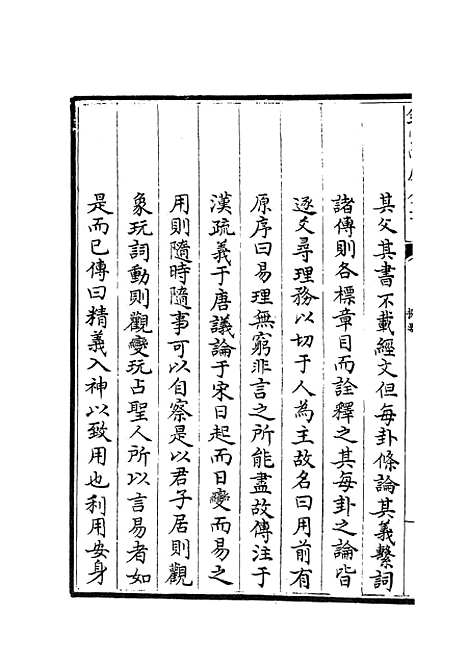 其父其書不載經文但每卦條論其義繫詞
諸傳則各標章目而詮釋之其每卦之論皆
逐爻尋理務以切于人為主故名曰用前有
原序曰易理無窮非言之所能盡故傳注于
漢疏義于唐議論于宋日起而日變而易之
用則隨時隨事可以自察是以君子居則觀
象玩詞動則觀變玩占聖人所以言易者如
是而已傳曰精義入神以致用也利用安身